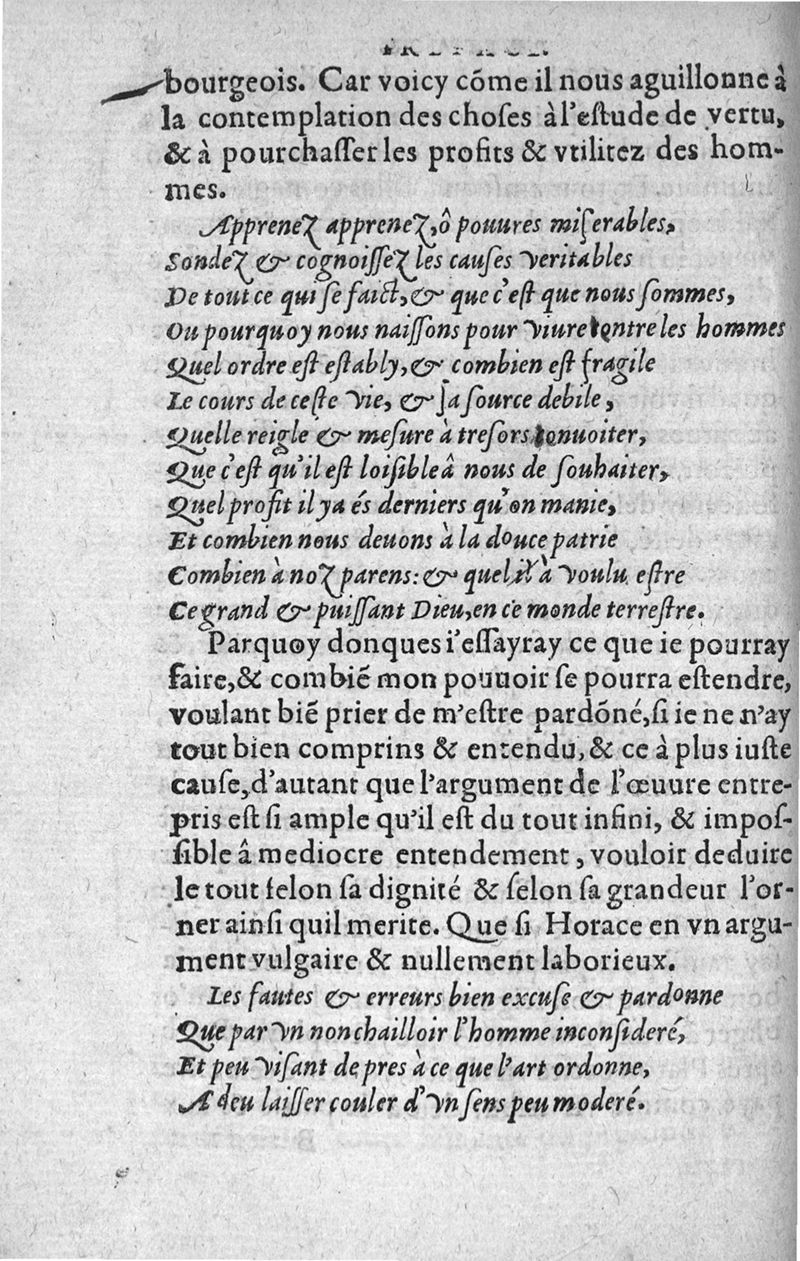 bourgeois. Car voicy cõme il nous aguillonne à
la contemplation des choſes à l'eſtude de vertu,
& à pourchaſſer les profits & vtilitez des hom-
mes.
Apprenez apprenez, ô pouures miſerables,
Sondez & cognoiſſez les cauſes veritables
De tout ce qui ſe faict, & que c'eſt que nous ſommes,
Ou pourquoy nous naiſſons pour viure entre les hommes
Quel ordre eſt eſtably, & combien eſt fragile
Le cours de ceſte vie, & ſa ſource debile,
Quelle reigle & meſure à treſors conuoiter,
Que c'eſt qu'il eſt loiſible â nous de ſouhaiter,
Quel profit il ya és derniers qu'on manie,
Et combien nous deuons à la douce patrie
Combien à noz parens: & quel il à voulu eſtre
Ce grand & puiſſant Dieu, en ce monde terreſtre.
Parquoy donques i'eſſayray ce que ie pourray
faire, & combiẽ mon pouuoir ſe pourra eſtendre,
voulant biẽ prier de m'eſtre pardõné, ſi ie ne n'ay
tout bien comprins & entendu, & ce à plus iuſte
cauſe, d'autant que l'argument de l'œuure entre-
pris eſt ſi ample qu'il eſt du tout infini, & impoſ-
ſible â mediocre entendement, vouloir deduire
le tout ſelon ſa dignité & ſelon ſa grandeur l'or-
ner ainſi quil merite. Que ſi Horace en vn argu-
ment vulgaire & nullement laborieux.
Les fautes & erreurs bien excuſe & pardonne
Que par vn nonchailloir l'homme inconſideré,
Et peu viſant de pres à ce que l'art ordonne,
A deu laiſſer couler d'vn ſens peu moderé.